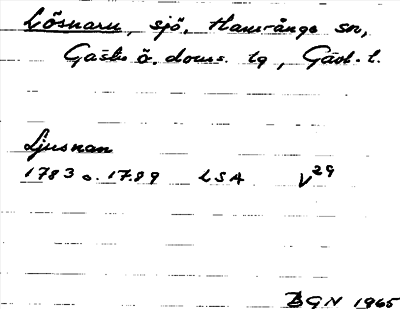 Lösnaru, sjö, Hamrånge sn,
Gästr. ö. doms. tg, Gävl. l.
Ljusnan
1783 o. 1789 LSA V29
BGN 1965